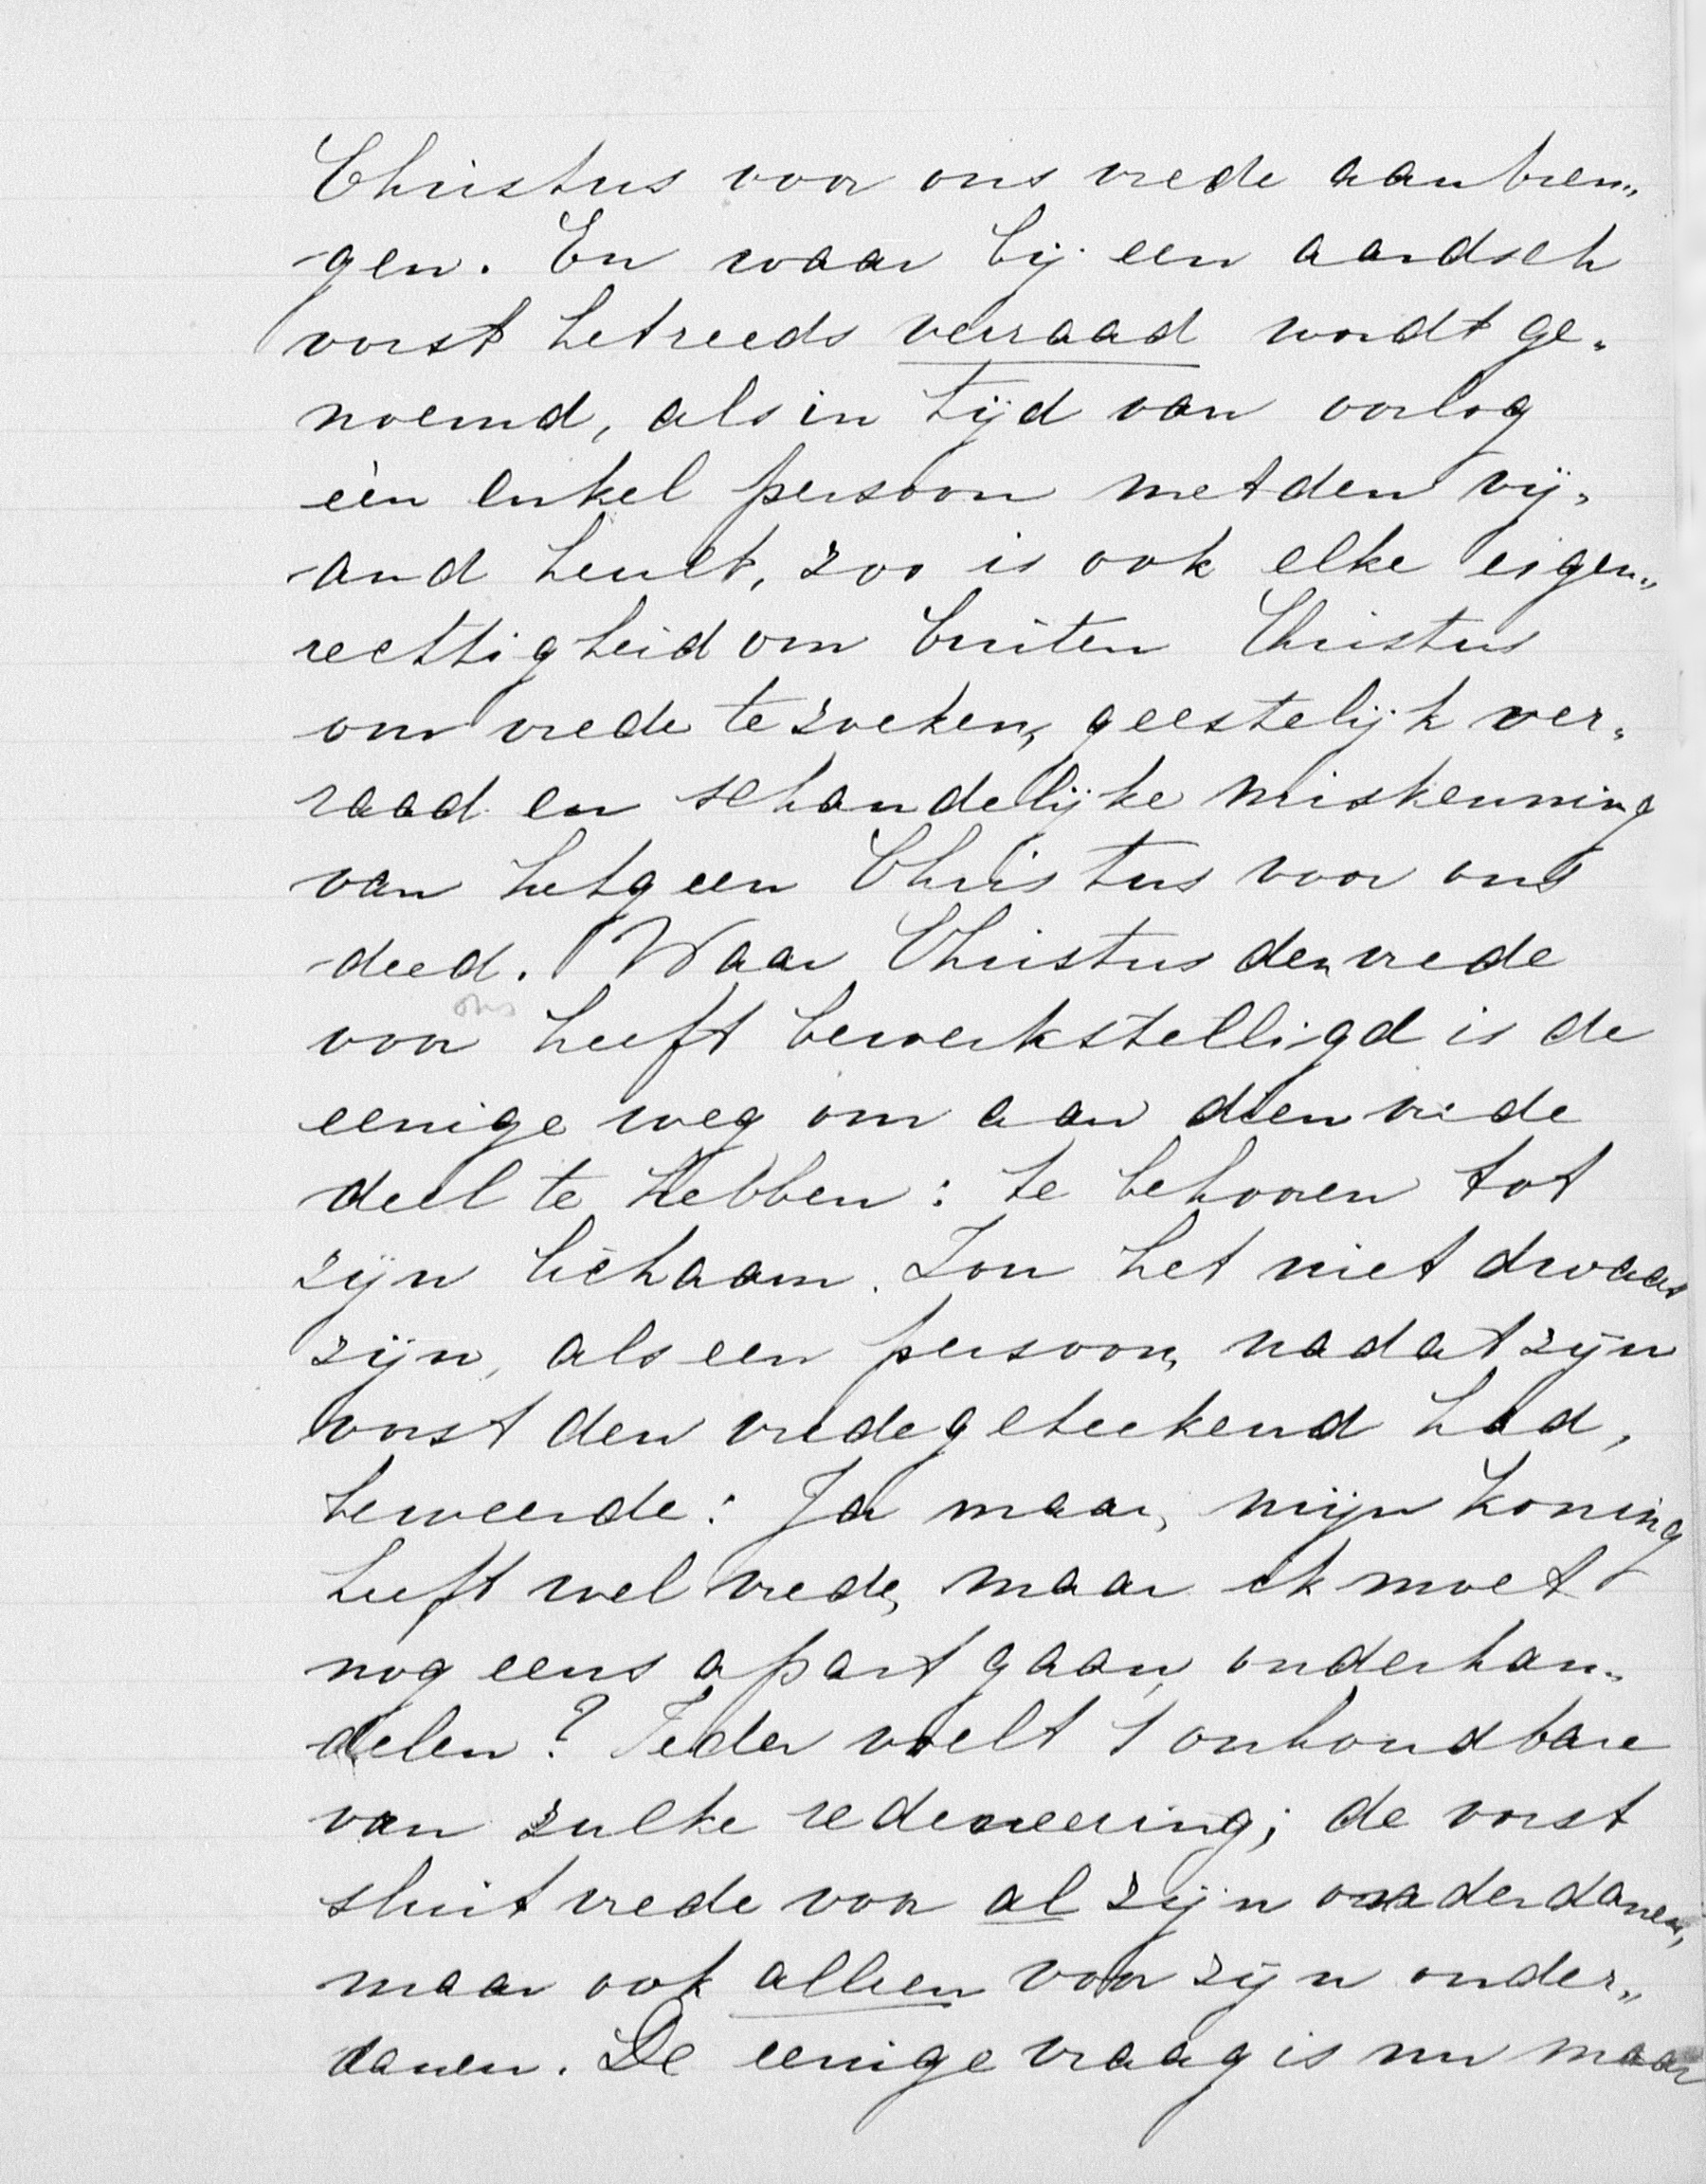 Christus voor ons vrede aanbren„
gen. En waar bij een aardsch
vorst het reeds verraad wordt ge„
noemd, als in tijd van oorlog
één enkel persoon met den vij„
and heult, zoo is ook elke eigen„
rechtigheid om buiten Christus
om vrede te zoeken, geestelijk ver„
raad en schandelijke miskenning
van hetgeen Christus voor ons
deed. Waar Christus den vrede
voor ons heeft bewerkstelligd is de
eenige weg om aan dien vrede
deel te hebben: te behooren tot
zijn lichaam. Zou het niet dwaas
zijn, als een persoon, nadat zijn
vorst den vrede geteekend had,
beweerde: Ja maar, mijn koning
heeft wel vrede, maar ik moet
nog eens apart gaan onderhan„
delen? Ieder voelt 't onhoudbare
van zulke redeneering; de vorst
sluit vrede voor al zijn onderdanen,
maar ook alleen voor zijn onder„
danen. De eenige vraag is nu maar